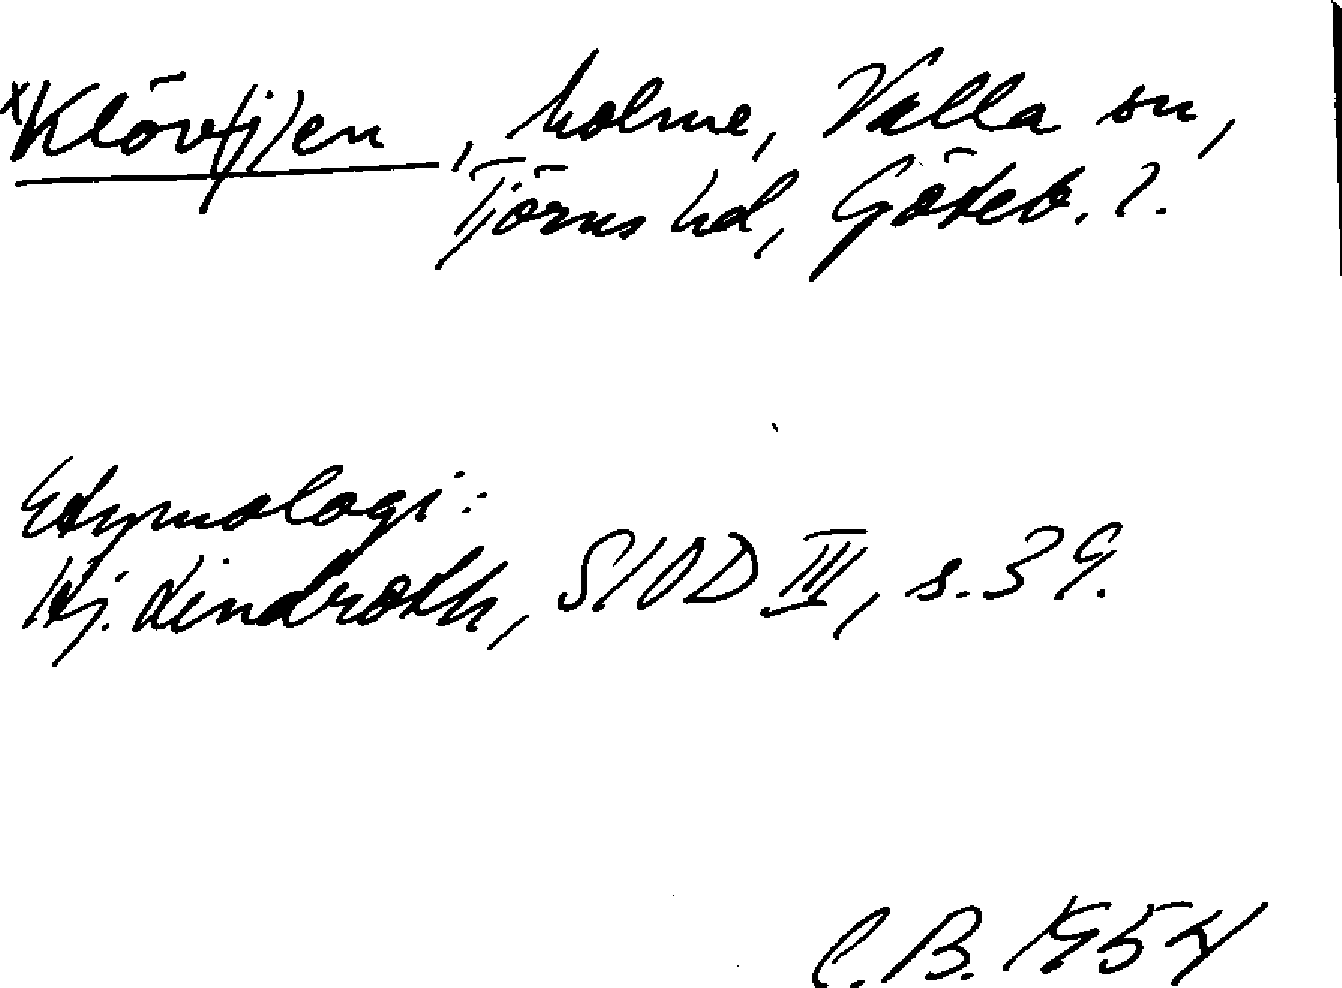 xKlöv(j)en, holme, Valla sn,
Tjörns hd, Göteb. l.
Etymologi:
Hj. Lindroth, SIOD III, s. 39.
C.B. 1954